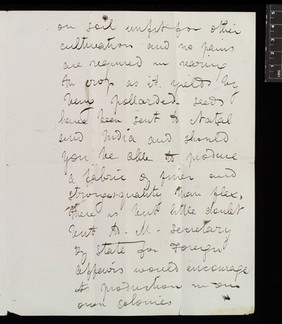 on soil unfit for other
cultivation and no pains
are required in rearing
the crop as it yields by
being pollarded. seeds
have been sent to Natal
and India and should
you be able to produce
a fabric of finer and
stronger quality than flax,
there is but little doubt
but H. M. secretary
of state for Foreign
Affairs would encourage
its production in our
own colonies